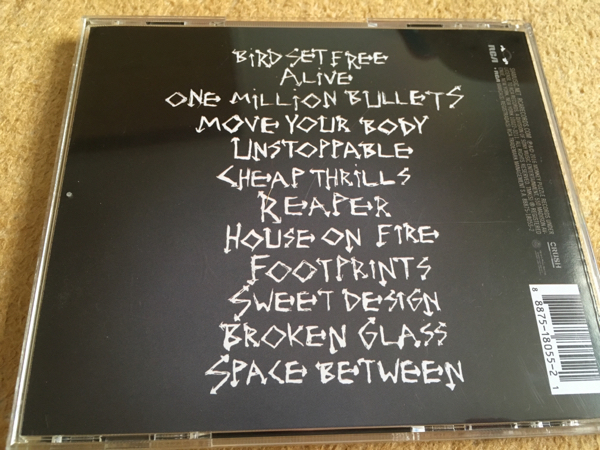 BIRD SET FREE
ALIVE
ONE MILLION BULLETS
MOVE YOUR BODY
UNSTOPPABLE
CHEAP THRILLS
REAPER
HOUSE ON FIRE
FOOTPRINTS
SWEET DESIGN
BROKEN GLASS
SPACE BETWEEN
RCA
CRUSH
8 8875-18055-2 1